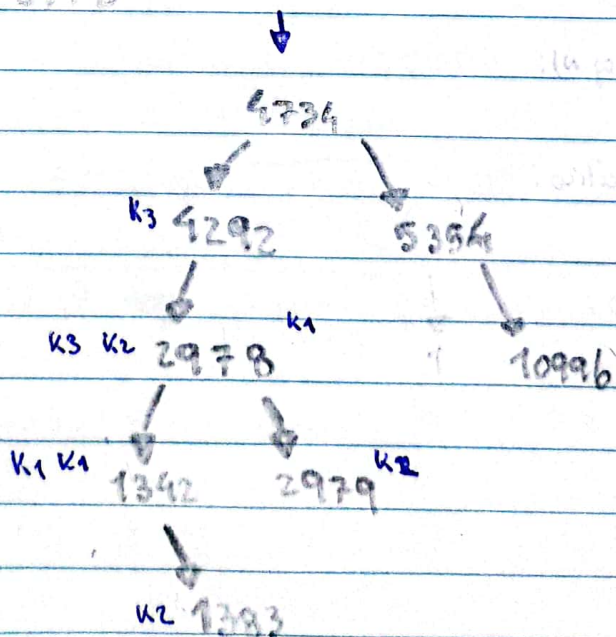 4734
K3 4292 5354
K3 K2 2978 K1 10996
K1 K1 1342 2979 K2
K2 1383